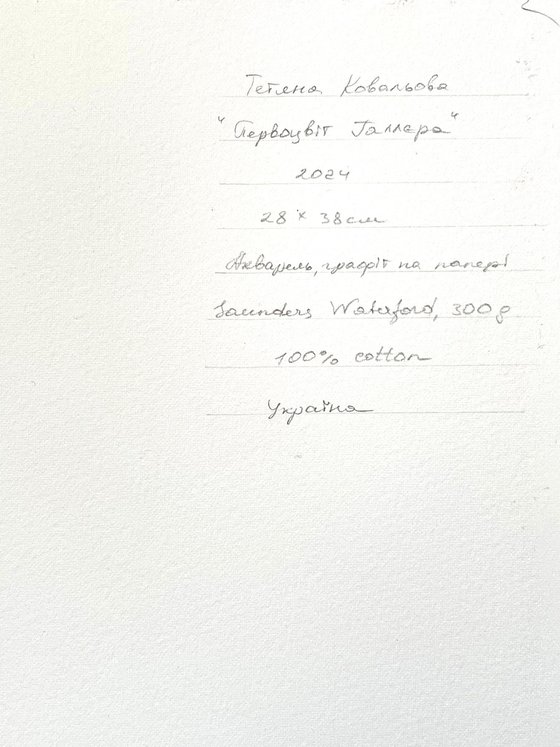 Тетяна Ковальова
"Первоцвіт Галлєра"
2024
28 x 38см
Акварель, графіт на папері
Saunders Waterford, 300g
100% cotton
Україна